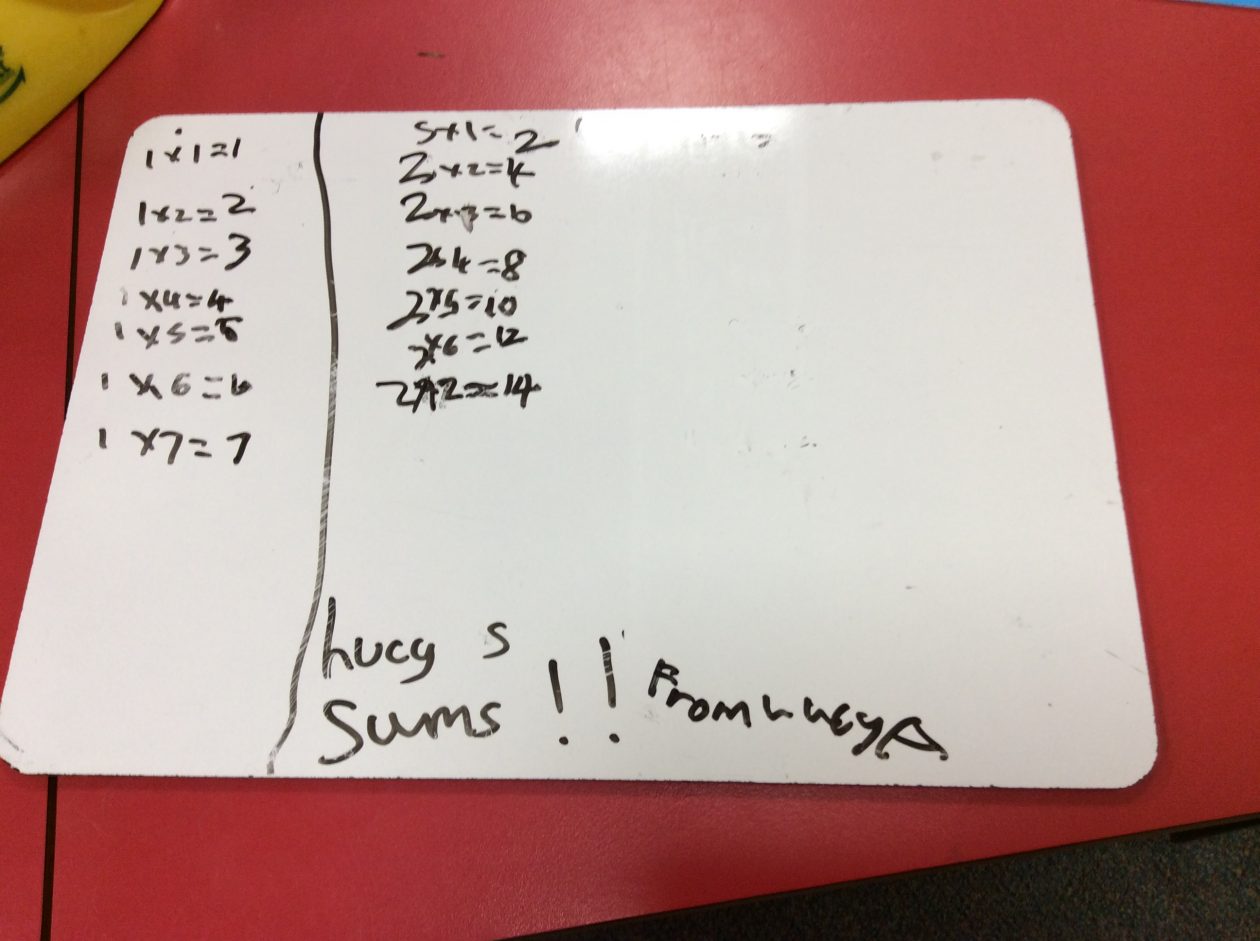 1x1=1
1x2=2
1x3=3
1x4=4
1x5=5
1x6=6
1x7=7
2x1=2
2x2=4
2x3=6
2x4=8
2x5=10
2x6=12
2x2=14
Lucy s
Sums !! From Lucy A